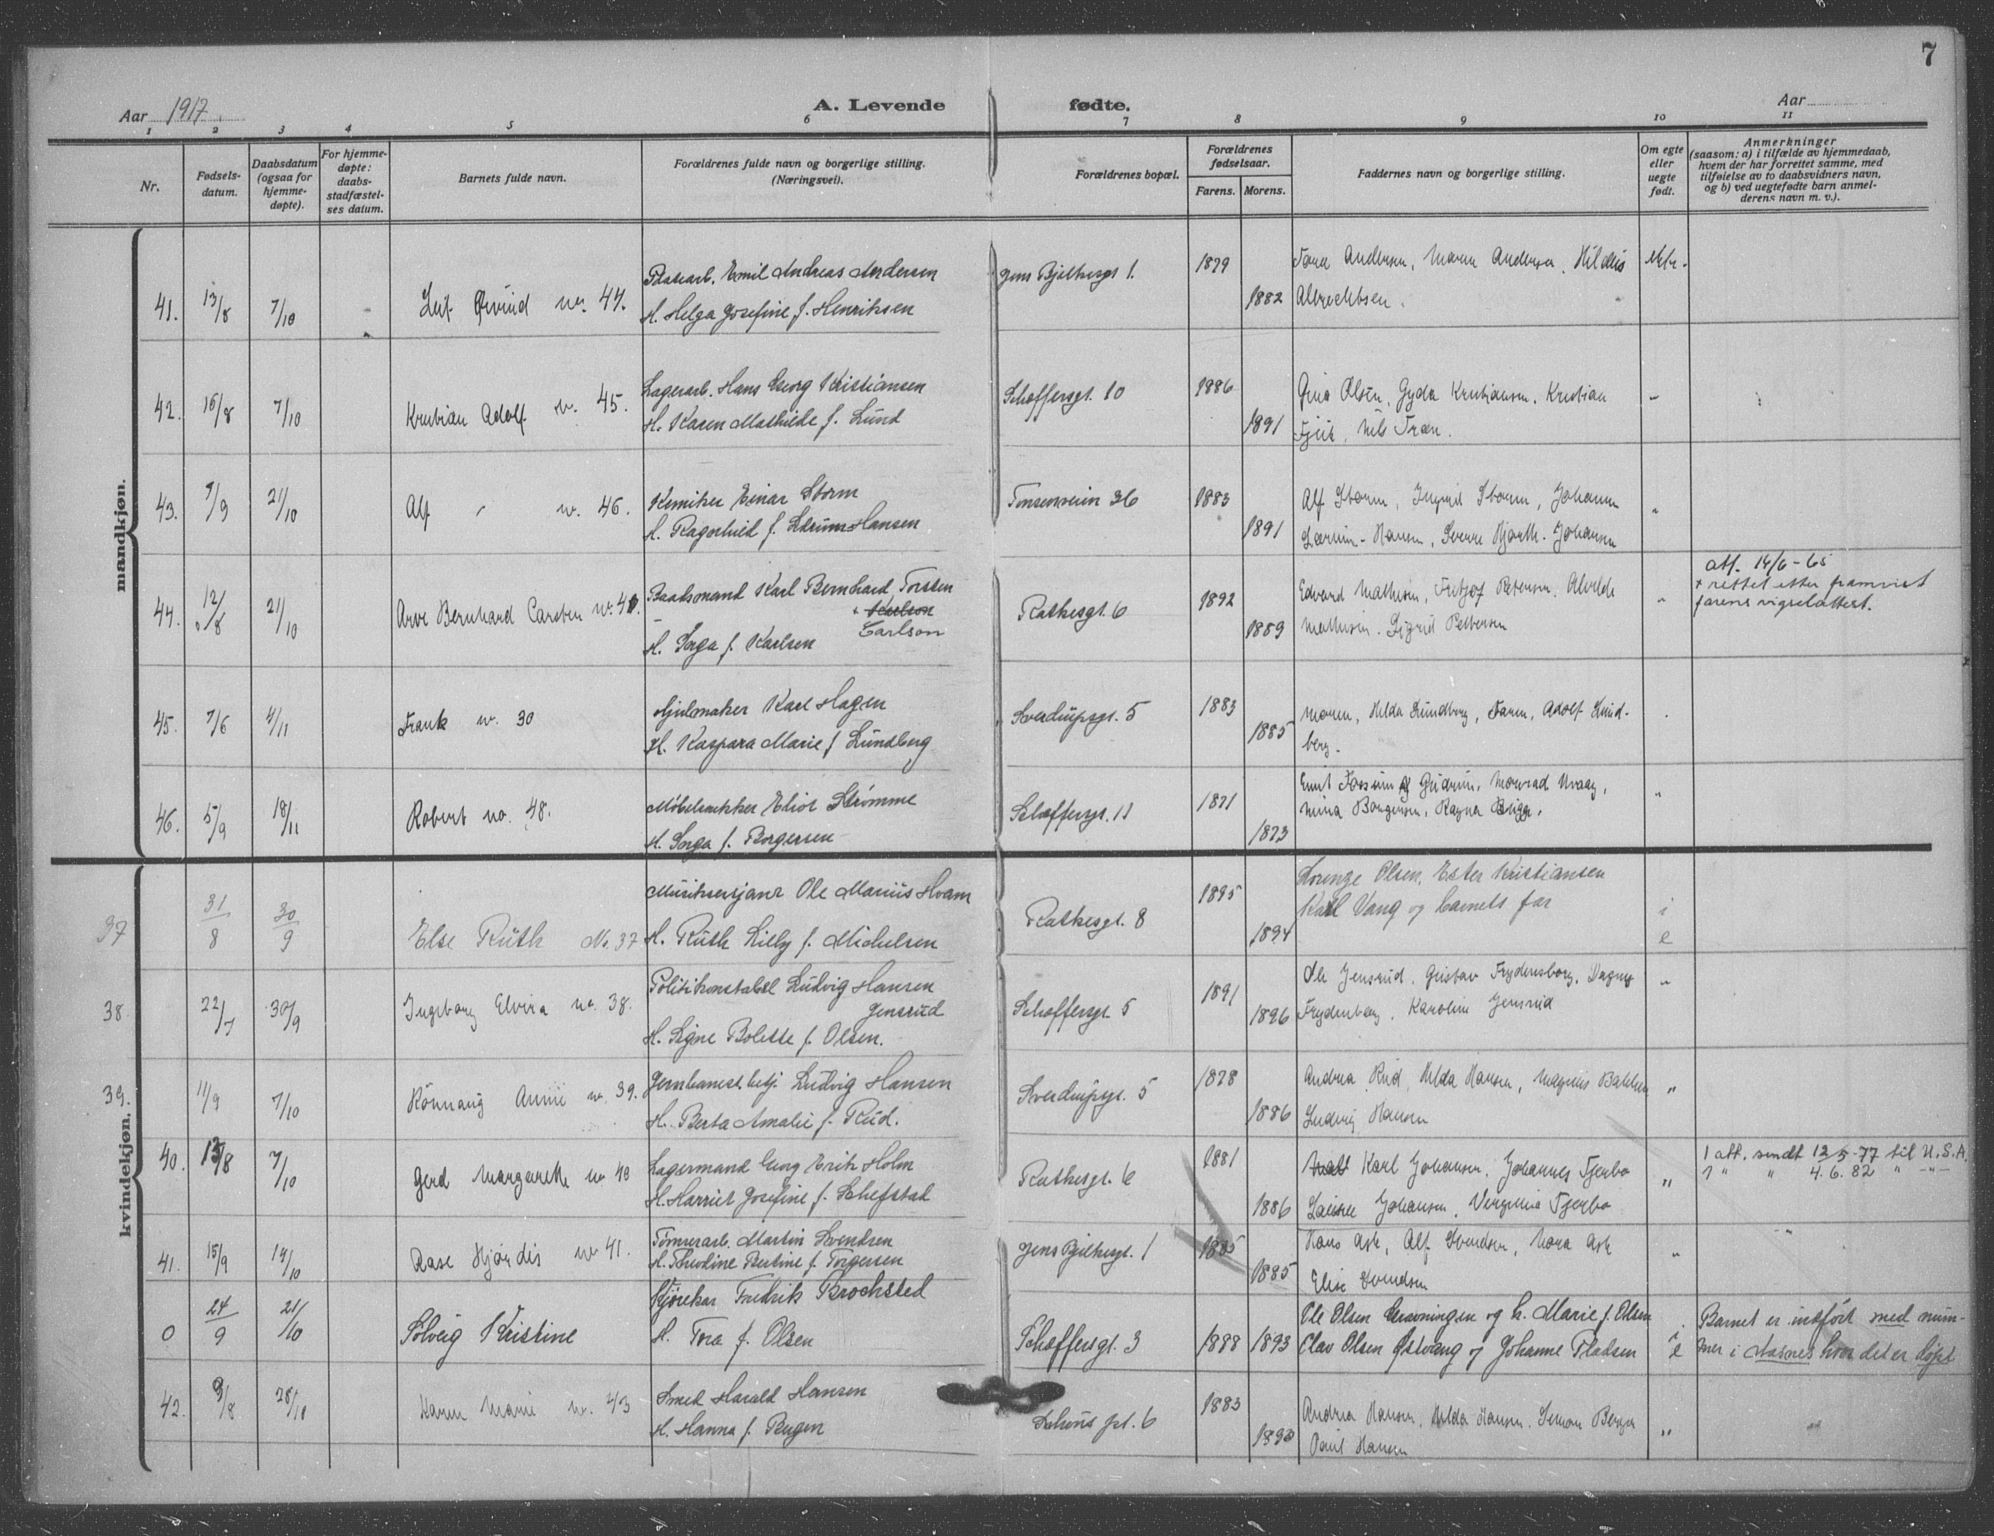 7
Aar 1917.
A. Levende fødte.
Aar
1 2 3 4 5 6 7 8 9 10 11
Nr.
Fødsels-
datum.
Daabsdatum
(ogsaa for
hjemme-
døpte).
For hjemme-
døpte:
daabs-
stadfæstel-
ses datum.
Barnets fulde navn.
Forældrenes fulde navn og borgerlige stilling.
(Næringsvei).
Forældrenes bopæl.
Forældrenes
fødselsaar.
Farens. Morens.
Faddernes navn og borgerlige stilling.
Om egte
eller
uegte
født.
Anmerkninger
(saasom: a) i tilfælde av hjemmedaab,
hvem der har forrettet samme, med
tilføielse av to daabsvidners navn,
og b) ved uegtefødte barn anmel-
derens navn m. v.).
mandkjøn.
41. 13/8 7/10 Leif Øivind no. 44.
Emil Andreas Andersen
H. Helga Josefine f. Henriksen
Jens Bjelkesgt 1. 1879 1882
Andersen, Maren Andersen, Hildus
Albrechtsen.
42. 16/8 7/10 Kristian Adolf no. 45.
Lagerarb. Hans Georg Kristiansen
H. Karen Mathilde f. Lund
Schøffersgt. 10 1886 1891
Olsen, Gyda Kristiansen, Kristian
Nils
43. 9/9 21/10 Alf no. 46.
Kemiker Einar Storm
H. Ragnhild f. Lærum-Hansen
Tonsenveien 36 1883 1891
Alf Storm, Ingrid Storm, Johanne
Lærum-Hansen, Sverre Hjorth-Johansen
44. 12/8 21/10 Arve Bernhard Carsten no.
Baatsmand Karl Bernhard Torsten
+ Karlson
Carlson
H. Inga f. Karlsen
Rathkesgt. 6 1892 1889
Edvard Mathisen, Fritjof Petersen,
Mathisen. Sigrid Pettersen
att. 14/6-65
+ rettet etter framvist
farens vigselattest.
45. 7/6 4/11 Frank no. 30
Hjulmaker Karl Hagen
H. Kaspara Marie f. Lundberg
Sverdrupsgt. 5 1883 1885
Moren, Hilda Lundberg, Faren, Adolf Lund-
berg.
46. 5/9 18/11 Robert no. 48.
Møbelsnekker Elior Strømme
H. Inga f. Borgersen
Schøffersgt. 11 1871 1873
Gudrun,
Mina Borgersen, Ragna
kvindekjøn.
37 31/8 30/9 Else Ruth No. 37
Ole Marius Hvam
H. Ruth Lilly f. Michelsen
Rathkesgt. 8 1895 1894
Lorenze Olsen, Ester Kristiansen
Karl Vang og barnets far
38. 22/7 30/9 Ingeborg Elvira no. 38.
Politikonstabel Ludvig Hansen
Jensrud
H. Signe Bolette f. Olsen.
Schøffersgt 5 1891 1896
Ole Jensrud, Gustav Frydensborg, Dagny
Frydenberg, Karoline Jensrud
39. 11/9 7/10 Rönnaug Annie no. 39.
Jernbanest. betj. Ludvig Hansen
H. Berta Amalie f. Rud.
Sverdrupsgt. 5 1878 1886
Andrea Rud, Hilda Hansen, Magnus Bakken
Ludvig Hansen
40. 13/8 7/10 Gerd Margarethe no 40
Lagermand Georg Erik Holm
H. Harriet Josefine f. Schefstad
Rathkesgt. 6 1881 1886
Karl Johansen, Johannes Fjerbo
Johansen, Fjerbo
1 att. sendt 12-5-77 til U.S.A.
1 " " 4.6.82 " -"-
41. 15/9 14/10 Aase Hjördis no 41.
Tømrerarb. Martin Svendsen
H. Thevline Bertine f. Torgersen
Jens Bjelkesgt. 1 1885 1885
Hans Ask, Alf Svendsen, Nora Ask
Elise Svendsen
0 24/9 21/10 Solveig Kristine
Kjørekar Fredrik Brochsted
H. Tora f. Olsen
Schøffersgt. 3 1888 1893
Ole Olsen Gravningen og h. Marie f. Olsen
Olav Olsen Østvang og Johanne Fladsen
Barnet er indført med num-
mer i Aasnes hvor det er døpt
42. 9/8 28/10 Karen Marie no. 43
Smed Harald Hansen
H. Hanna f. Bugen
Schous pl. 6 1883
Andrea Hansen, Hilda Hansen,
Paul Hansen